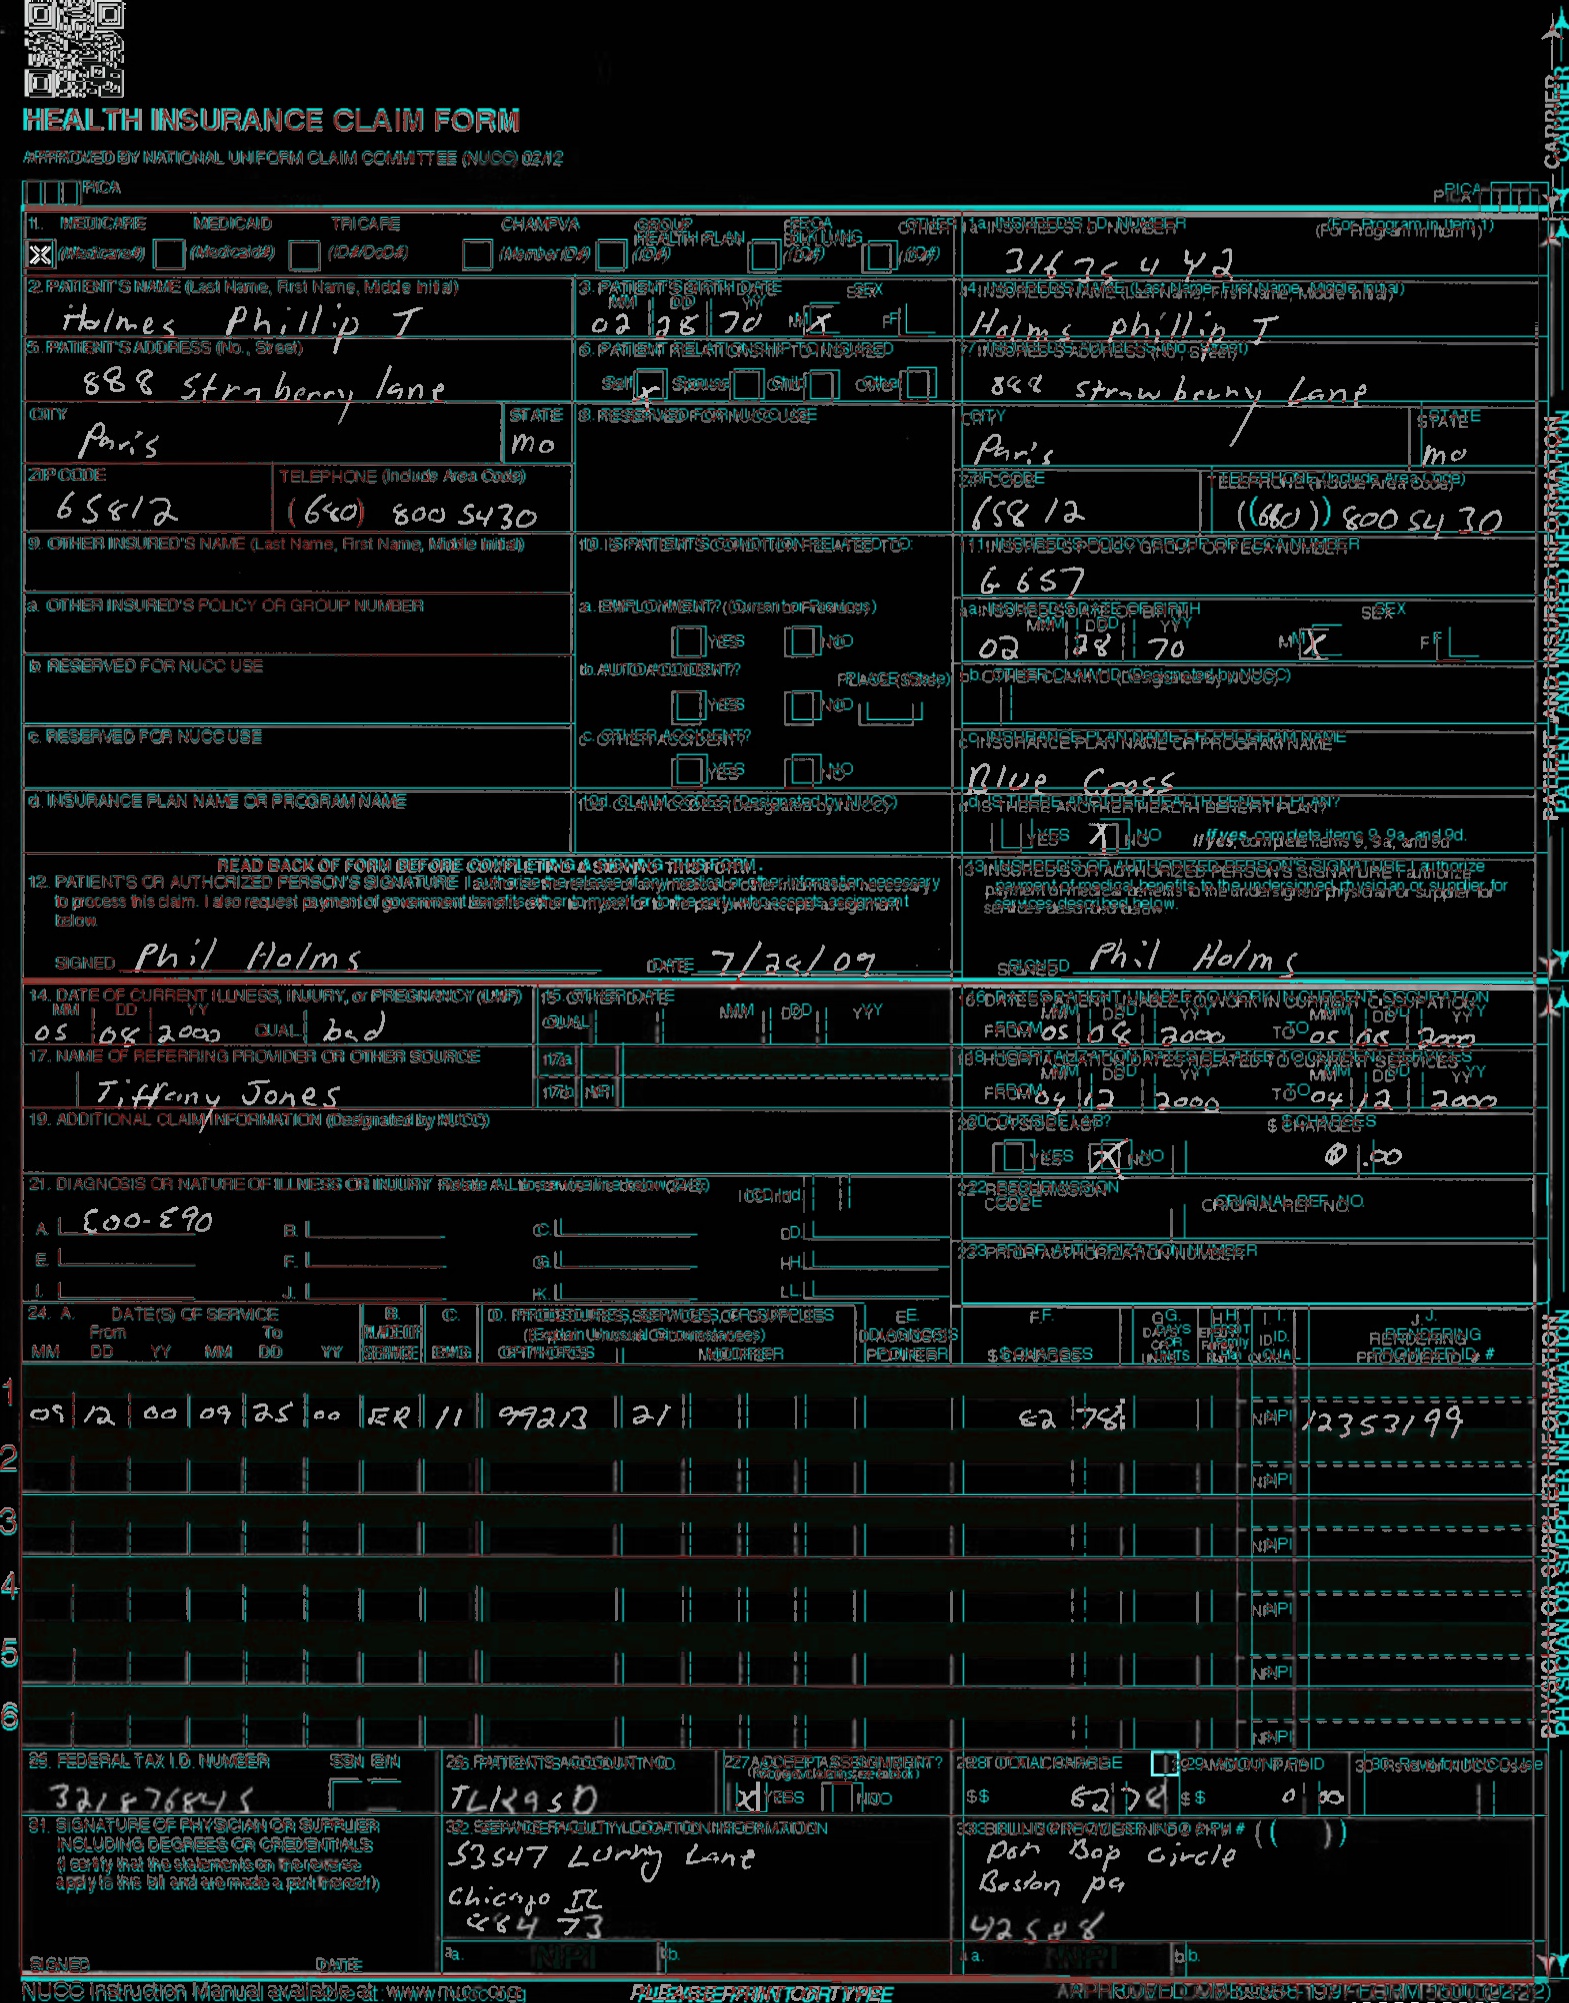 HEALTH INSURANCE CLAIM FORM
APPROVED BY NATIONAL UNIFORM CLAIM COMMITTEE (NUCC) 02/12
PICA PICA
CARRIER
1. MEDICARE MEDICAID TRICARE CHAMPVA GROUP HEALTH PLAN FECA BLK LUNG OTHER
(Medicare#) (Medicaid#) (ID#/DoD#) (Member ID#) (ID#) (ID#) (ID#)
1a. INSURED'S I.D. NUMBER (For Program in Item 1)
2. PATIENT'S NAME (Last Name, First Name, Middle Initial)
Holmes Phillip T
3. PATIENT'S BIRTH DATE SEX
MM DD YY
02 28 70 M X F
4. INSURED'S NAME (Last Name, First Name, Middle Initial)
Holms phillip T
5. PATIENT'S ADDRESS (No., Street)
888 Strabenny lane
6. PATIENT RELATIONSHIP TO INSURED
Self X Spouse Child Other
7. INSURED'S ADDRESS (No., Street)
888 strawbenny Lane
CITY STATE
Paris mo
8. RESERVED FOR NUCC USE
CITY STATE
Paris mo
ZIP CODE TELEPHONE (Include Area Code)
65812 (680) 800 5430
ZIP CODE TELEPHONE (Include Area Code)
65812 (680) 800 5430
9. OTHER INSURED'S NAME (Last Name, First Name, Middle Initial)
10. IS PATIENT'S CONDITION RELATED TO:
11. INSURED'S POLICY GROUP OR FECA NUMBER
G 657
a. OTHER INSURED'S POLICY OR GROUP NUMBER
a. EMPLOYMENT? (Current or Previous)
YES NO
a. INSURED'S DATE OF BIRTH SEX
MM DD YY
02 28 70 M X F
b. RESERVED FOR NUCC USE
b. AUTO ACCIDENT? PLACE (State)
YES NO
b. OTHER CLAIM ID (Designated by NUCC)
c. RESERVED FOR NUCC USE
c. OTHER ACCIDENT?
YES NO
c. INSURANCE PLAN NAME OR PROGRAM NAME
Blue Cross
d. INSURANCE PLAN NAME OR PROGRAM NAME
10d. CLAIM CODES (Designated by NUCC)
d. IS THERE ANOTHER HEALTH BENEFIT PLAN?
YES X NO If yes, complete items 9, 9a, and 9d.
READ BACK OF FORM BEFORE COMPLETING & SIGNING THIS FORM.
12. PATIENT'S OR AUTHORIZED PERSON'S SIGNATURE I authorize the release of any medical or other information necessary
to process this claim. I also request payment of government benefits either to myself or to the party who accepts assignment
below.
SIGNED Phil Holms DATE 7/28/09
13. INSURED'S OR AUTHORIZED PERSON'S SIGNATURE I authorize
payment of medical benefits to the undersigned physician or supplier for
services described below.
SIGNED Phil Holms
PATIENT AND INSURED INFORMATION
14. DATE OF CURRENT ILLNESS, INJURY, or PREGNANCY (LMP)
MM DD YY
05 08 2000 QUAL. bad
15. OTHER DATE
QUAL. MM DD YY
16. DATES PATIENT UNABLE TO WORK IN CURRENT OCCUPATION
MM DD YY MM DD YY
FROM 05 08 2000 TO 05 08 2000
17. NAME OF REFERRING PROVIDER OR OTHER SOURCE
Tiffany Jones
17a.
17b. NPI
18. HOSPITALIZATION DATES RELATED TO CURRENT SERVICES
MM DD YY MM DD YY
FROM 04 12 2000 TO 04 12 2000
19. ADDITIONAL CLAIM INFORMATION (Designated by NUCC)
20. OUTSIDE LAB? $ CHARGES
YES X NO 0 .00
21. DIAGNOSIS OR NATURE OF ILLNESS OR INJURY Relate A-L to service line below (24E) ICD Ind.
A. E00-E90 B. C. D.
E. F. G. H.
I. J. K. L.
22. RESUBMISSION CODE ORIGINAL REF. NO.
23. PRIOR AUTHORIZATION NUMBER
24. A. DATE(S) OF SERVICE B. C. D. PROCEDURES, SERVICES, OR SUPPLIES E. F. G. H. I. J.
From To PLACE OF (Explain Unusual Circumstances) DIAGNOSIS DAYS OR ID. RENDERING
MM DD YY MM DD YY SERVICE EMG CPT/HCPCS MODIFIER POINTER $ CHARGES UNITS QUAL. PROVIDER ID. #
1 09 12 00 09 25 00 ER 11 99213 21 62 78 NPI 12353199
2 NPI
3 NPI
4 NPI
5 NPI
6 NPI
25. FEDERAL TAX I.D. NUMBER SSN EIN
321876845
26. PATIENT'S ACCOUNT NO.
JLK950
27. ACCEPT ASSIGNMENT?
X YES NO
28. TOTAL CHARGE
$ 62 78
29. AMOUNT PAID
$ 0 00
30. Rsvd for NUCC Use
31. SIGNATURE OF PHYSICIAN OR SUPPLIER
INCLUDING DEGREES OR CREDENTIALS
(I certify that the statements on the reverse
apply to this bill and are made a part thereof.)
SIGNED DATE
32. SERVICE FACILITY LOCATION INFORMATION
53547 Lane
Chicago IL
a. NPI b.
33. BILLING PROVIDER INFO & PH # ( )
Bop circle
Boston pa
42588
a. NPI b.
PHYSICIAN OR SUPPLIER INFORMATION
NUCC Instruction Manual available at: www.nucc.org
PLEASE PRINT OR TYPE